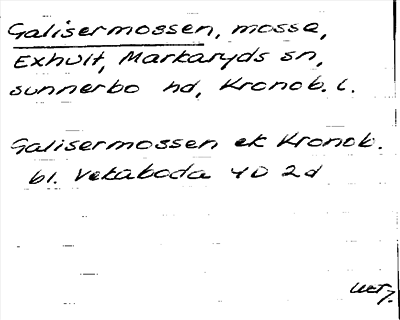 Galisermossen, mosse,
Exhult, Markaryds sn,
sunnerbo hd, Kronob. l.
Galisermossen ek Kronob.
bl. Vekaboda 4D 2d